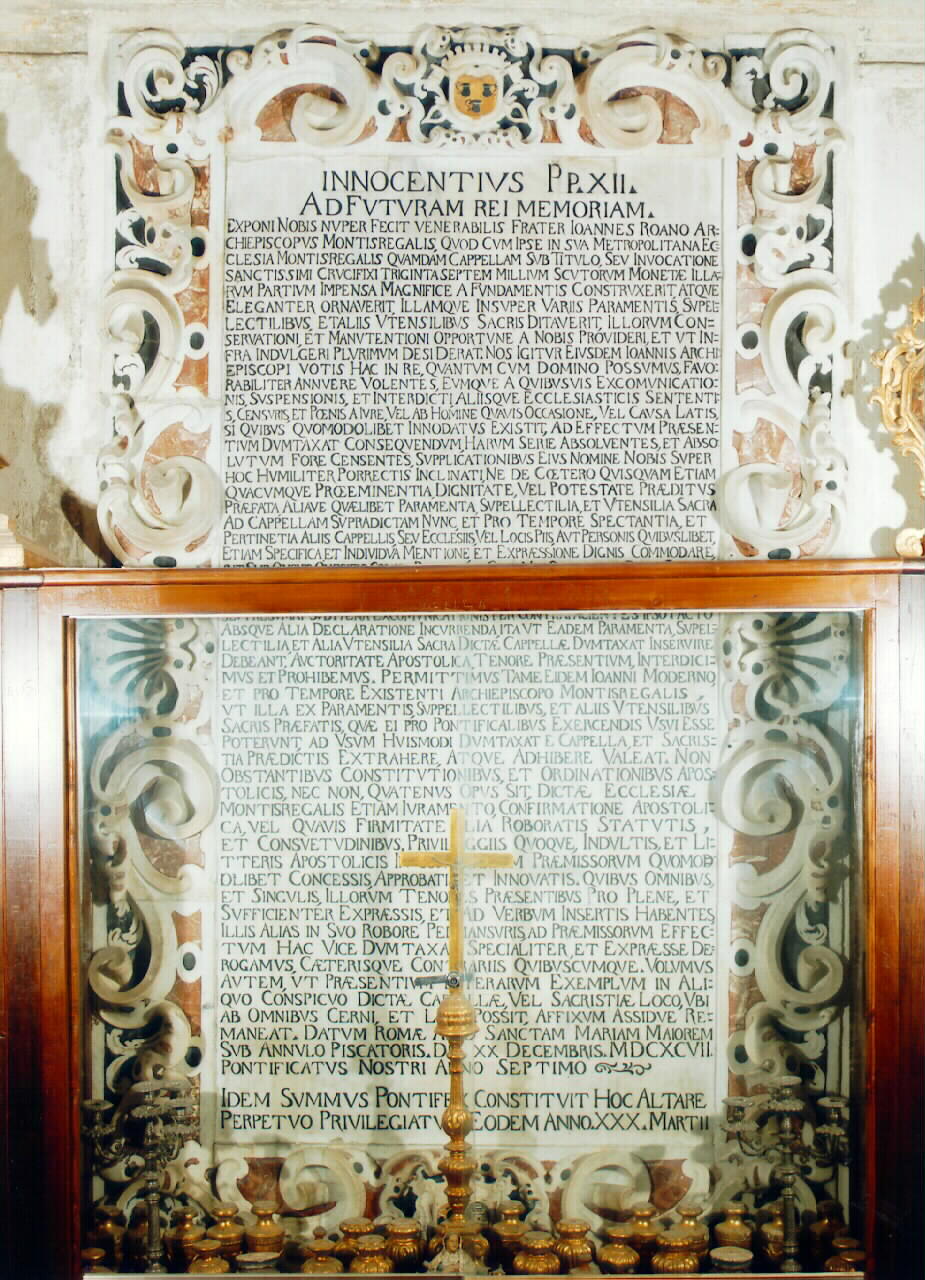 INNOCENTIVS PP.XII.
AD FVTVRAM REI MEMORIAM.
EXPONI NOBIS NVPER FECIT VENERABILIS FRATER IOANNES ROANO AR:
CHIEPISCOPVS MONTISREGALIS, QVOD CVM IPSE IN SVA METROPOLITANA EC:
CLESIA MONTISREGALIS QVAMDAM CAPPELLAM SVB TITVLO, SEV INVOCATIONE
SANCTISSIMI CRVCIFIXI TRIGINTA SEPTEM MILLIVM SCVTORVM MONETÆ ILLA:
RVM PARTIVM IMPENSA MAGNIFICE A FVNDAMENTIS CONSTRVXERIT, ATQVE
ELEGANTER ORNAVERIT, ILLAMQVE INSVPER VARIIS PARAMENTIS, SVPEL:
LECTILIBVS, ET ALIIS VTENSILIBVS SACRIS DITAVERIT, ILLORVM CON:
SERVATIONI, ET MANVTENTIONI OPPORTVNE A NOBIS PROVIDERI, ET VT IN:
FRA INDVLGERI PLVRIMVM DESIDERAT. NOS IGITVR EIVSDEM IOANNIS ARCHI:
EPISCOPI VOTIS HAC IN RE, QVANTVM CVM DOMINO POSSVMVS, FAVO:
RABILITER ANNVERE VOLENTES, EVMQVE A QVIBVSVIS EXCOMVNICATIO:
NIS, SVSPENSIONIS, ET INTERDICTI ALIISQVE ECCLESIASTICIS SENTENTI:
S, CENSVRIS, ET POENIS A IVRE, VEL AB HOMINE QVAVIS OCCASIONE, VEL CAVSA LATIS,
SI QVIBVS QVOMODOLIBET INNODATVS EXISTIT, AD EFFECTVM PRÆSEN:
TIVM DVMTAXAT CONSEQVENDVM, HARVM SERIE ABSOLVENTES, ET ABSO:
LVTVM FORE CENSENTES, SVPPLICATIONIBVS EIVS NOMINE NOBIS SVPER
HOC HVMILITER PORRECTIS INCLINATI, NE DE COETERO QVISQVAM ETIAM
QVACVMQVE PROEEMINENTIA, DIGNITATE, VEL POTESTATE PRÆDITVS
PRÆFATA ALIAVE QVÆLIBET PARAMENTA, SVPELLECTILIA, ET VTENSILIA SACRA
AD CAPPELLAM SVPRADICTAM NVNC, ET PRO TEMPORE SPECTANTIA, ET
PERTINETIA ALIIS CAPPELLIS, SEV ECCLESIIS, VEL LOCIS PIIS, AVT PERSONIS QVIBVSLIBET,
ETIAM SPECIFICA ET INDIVIDVA MENTIONE ET EXPRÆSSIONE DIGNIS COMMODARE,
ABSQVE ALIA DECLARATIONE INCVRRENDA ITA VT EADEM PARAMENTA, SVPEL:
LECTILIA ET ALIA VTENSILIA SACRA DICTÆ CAPPELLÆ DVMTAXAT INSERVIRE
DEBEANT, AVCTORITATE APOSTOLICA, TENORE PRÆSENTIVM, INTERDICI:
MVS ET PROHIBEMVS. PERMITTIMVS TAME EIDEM IOANNI MODERNO
ET PRO TEMPORE EXISTENTI ARCHIEPISCOPO MONTISREGALIS,
VT ILLA EX PARAMENTIS, SVPPELLECTILIBVS, ET ALIIS VTENSILIBVS
SACRIS PRÆFATIS, QVÆ EI PRO PONTIFICALIBVS EXERCENDIS VSVI ESSE
POTERVNT, AD VSVM HVISMODI DVMTAXAT E CAPPELLA, ET SACRIS:
TIA PRÆDICTIS EXTRAHERE, ATQVE ADHIBERE VALEAT. NON
OBSTANTIBVS CONSTITVTIONIBVS, ET ORDINATIONIBVS APOS:
TOLICIS, NEC NON, QVATENVS OPVS SIT, DICTÆ ECCLESIÆ
MONTISREGALIS ETIAM IVRAMENTO, CONFIRMATIONE APOSTOLI:
CA, VEL QVAVIS FIRMITATE ALIA ROBORATIS STATVTIS,
ET CONSVETVDINIBVS, PRIVILEGGIIS QVOQVE, INDVLTIS, ET LI:
TTERIS APOSTOLICIS IN PRÆMISSORVM QVOMOD
DLIBET CONCESSIS, APPROBATIS ET INNOVATIS. QVIBVS OMNIBVS,
ET SINGVLIS, ILLORVM TENORES PRÆSENTIBVS PRO PLENE, ET
SVFFICIENTER EXPRÆSSIS, ET AD VERBVM INSERTIS HABENTES,
ILLIS ALIAS IN SVO ROBORE PERMANSVRIS, AD PRÆMISSORVM EFFEC:
TVM HAC VICE DVMTAXAT SPECIALITER, ET EXPRÆSSE DE:
ROGAMVS, CÆTERISQVE CONTRARIIS QVIBVSCVMQVE. VOLVMVS
AVTEM, VT PRÆSENTIVM LITERARVM EXEMPLVM IN ALI:
QVO CONSPICVO DICTÆ CAPELLÆ, VEL SACRISTIÆ LOCO, VBI
AB OMNIBVS CERNI, ET LEGI POSSIT, AFFIXVM ASSIDVE RE:
MANEAT. DATVM ROMÆ APVD SANCTAM MARIAM MAIOREM
SVB ANNVLO PISCATORIS. DIE XX DECEMBRIS. MDCXCVII.
PONTIFICATVS NOSTRI ANNO SEPTIMO
IDEM SVMMVS PONTIFEX CONSTITVIT HOC ALTARE
PERPETVO PRIVILEGIATVM EODEM ANNO. XXX. MARTII